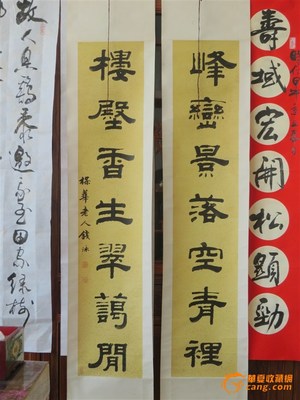 壽域宏開松顯勁
峰巒景落空青裡
樓壂香生翠藹間
梅華老人錢泳
故人具鷄黍邀我至田家綠樹
華夏收藏網
cang.com